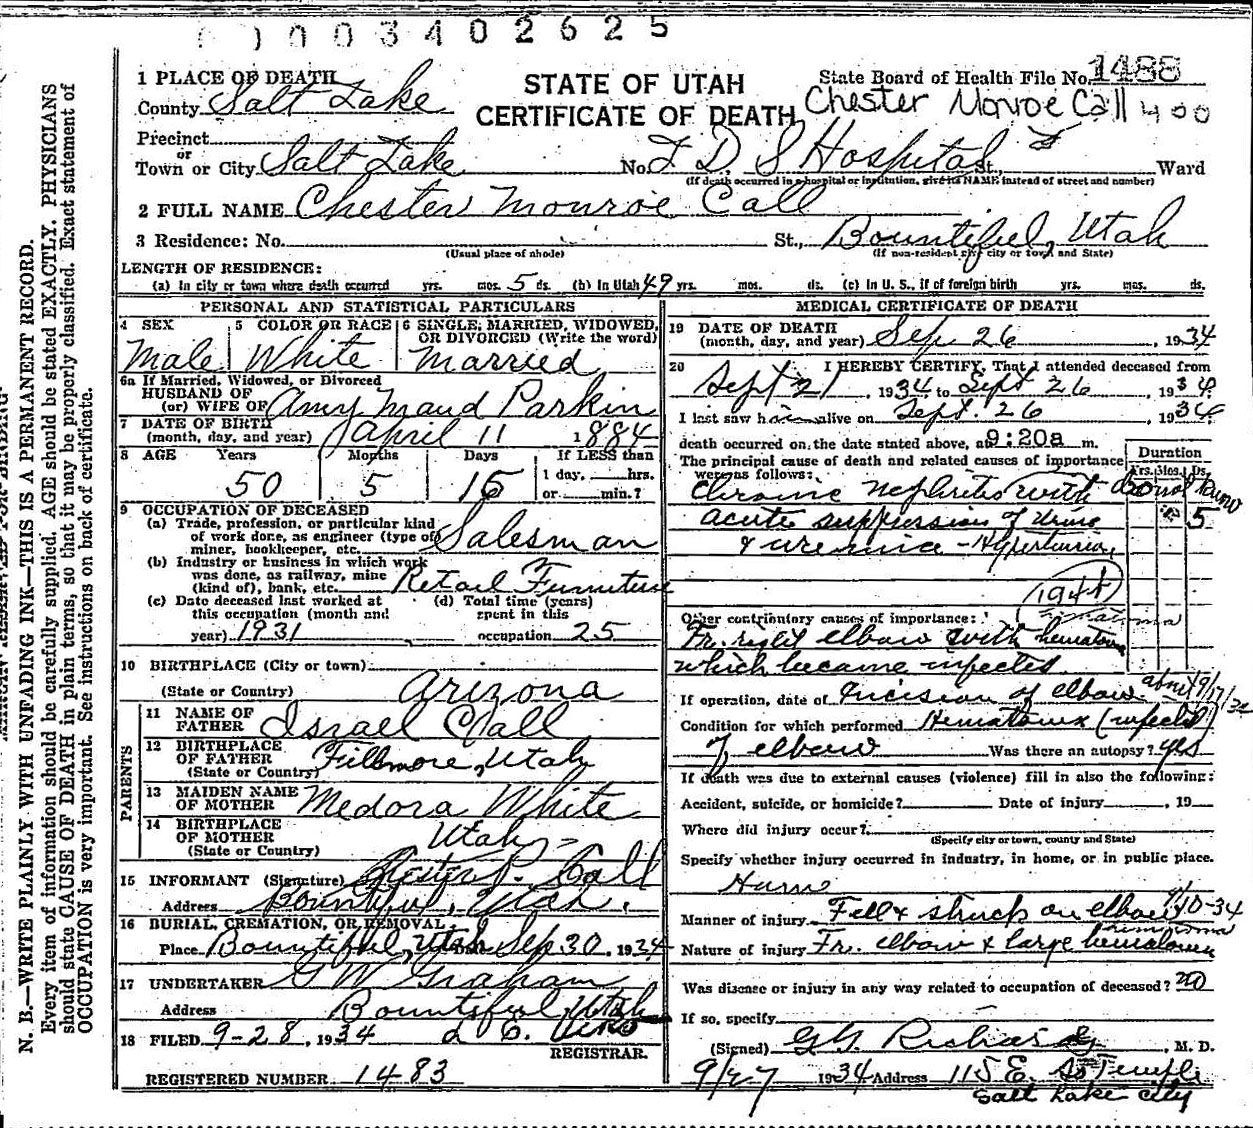 0 0 0 3 4 0 2 6 2 5
1 PLACE OF DEATH
County Salt Lake
STATE OF UTAH
CERTIFICATE OF DEATH
State Board of Health File No. 1488
Chester Monroe Call 400
Precinct
or
Town or City Salt Lake No. L D S Hospital St., Ward
(If death occurred in a hospital or institution, give its NAME instead of street and number)
2 FULL NAME Chester Monroe Call
3 Residence: No. St., Bountiful, Utah
(Usual place of abode) (If non-resident give city or town and State)
LENGTH OF RESIDENCE:
(a) In city or town where death occurred yrs. mos. 5 ds. (b) In Utah 49 yrs. mos. ds. (c) In U. S., if of foreign birth yrs. mos. ds.
PERSONAL AND STATISTICAL PARTICULARS
4 SEX 5 COLOR OR RACE 6 SINGLE, MARRIED, WIDOWED, OR DIVORCED (Write the word)
Male White Married
6a If Married, Widowed, or Divorced
HUSBAND OF
(or) WIFE OF Amy Maud Parkin
7 DATE OF BIRTH
(month, day, and year) April 11 1884
8 AGE Years Months Days If LESS than
1 day, hrs.
50 5 15 or min.?
9 OCCUPATION OF DECEASED
(a) Trade, profession, or particular kind
of work done, as engineer (type of
miner, bookkeeper, etc. Salesman
(b) Industry or business in which work
was done, as railway, mine
(kind of), bank, etc. Retail Furniture
(c) Date deceased last worked at (d) Total time (years)
this occupation (month and spent in this
year) 1931 occupation 25
10 BIRTHPLACE (City or town)
(State or Country) Arizona
PARENTS
11 NAME OF
FATHER Israel Call
12 BIRTHPLACE
OF FATHER Fillmore, Utah
(State or Country)
13 MAIDEN NAME
OF MOTHER Medora White
14 BIRTHPLACE
OF MOTHER Utah -
(State or Country)
15 INFORMANT (Signature) Chester P. Call
Address Bountiful, Utah.
16 BURIAL, CREMATION, OR REMOVAL
Place Bountiful, Utah Date Sep 30, 1934
17 UNDERTAKER G W Graham
Address Bountiful, Utah
18 FILED 9-28, 1934
REGISTRAR.
REGISTERED NUMBER 1483
MEDICAL CERTIFICATE OF DEATH
19 DATE OF DEATH
(month, day, and year) Sep 26, 1934
20 I HEREBY CERTIFY, That I attended deceased from
Sept 21, 1934 to Sept 26, 1934.
I last saw him alive on Sept. 26 1934
death occurred on the date stated above, at 9:20a m.
The principal cause of death and related causes of importance
were as follows: Duration
Yrs. Mos. Ds.
Chronic Nephritis with
acute suppression of Urine 5
& uremia - Hypertension
(194)
Other contributory causes of importance:
Fr. right elbow with hematoma
which became infected
If operation, date of Incision of elbow about 9/17/34
Condition for which performed Hematoma (infected)
of elbow Was there an autopsy? yes
If death was due to external causes (violence) fill in also the following:
Accident, suicide, or homicide? Date of injury , 19
Where did injury occur?
(Specify city or town, county and State)
Specify whether injury occurred in industry, in home, or in public place.
Home
Manner of injury Fell & struck on elbow 9/10-34
Nature of injury Fr. elbow & large hematoma
Was disease or injury in any way related to occupation of deceased? no
If so, specify
(Signed) G.G. Richards, M. D.
9/27 1934 Address 115 E. So Temple
Salt Lake City
N. B.—WRITE PLAINLY WITH UNFADING INK—THIS IS A PERMANENT RECORD.
Every item of information should be carefully supplied. AGE should be stated EXACTLY. PHYSICIANS
should state CAUSE OF DEATH in plain terms, so that it may be properly classified. Exact statement of
OCCUPATION is very important. See instructions on back of certificate.